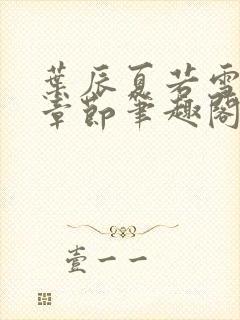 葉辰夏若雪
章節筆趣閣
壹一一